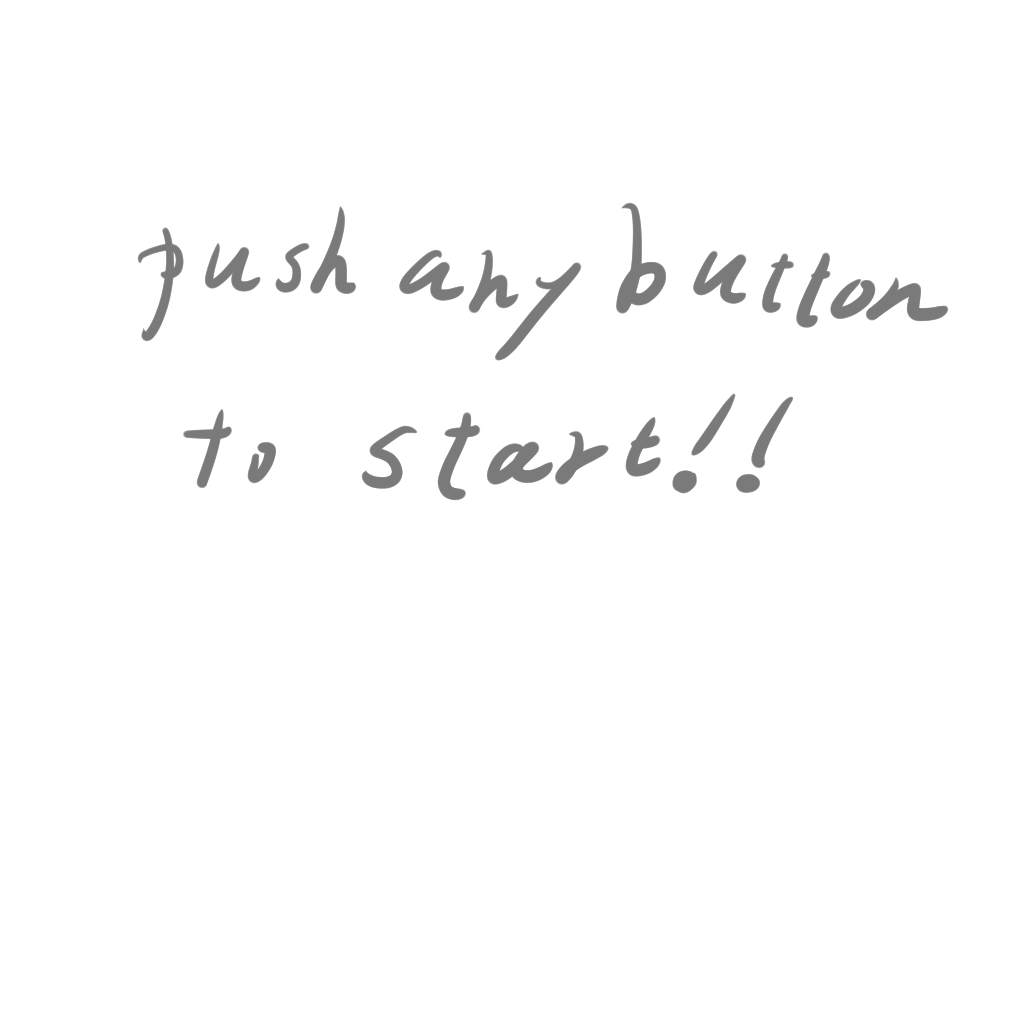 push any button
to start!!